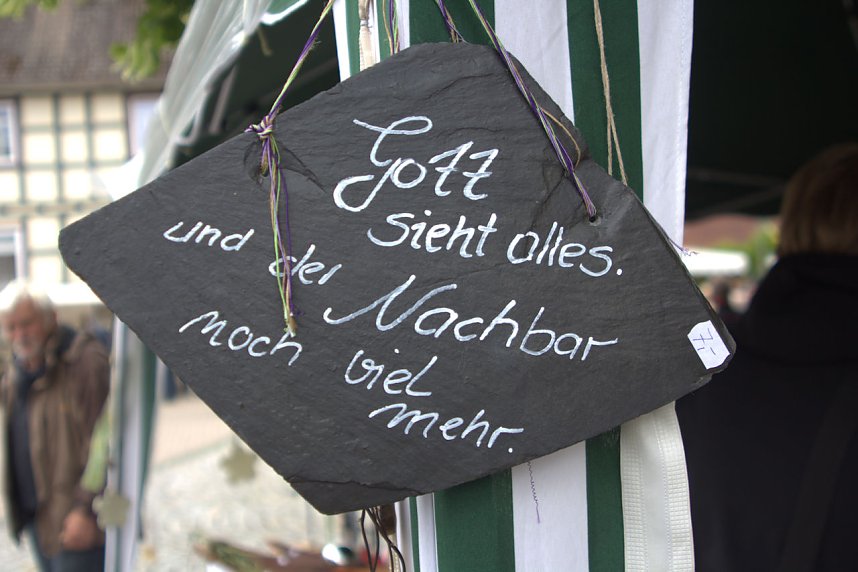 Gott
sieht alles.
und der Nachbar
noch viel
mehr.
7,-